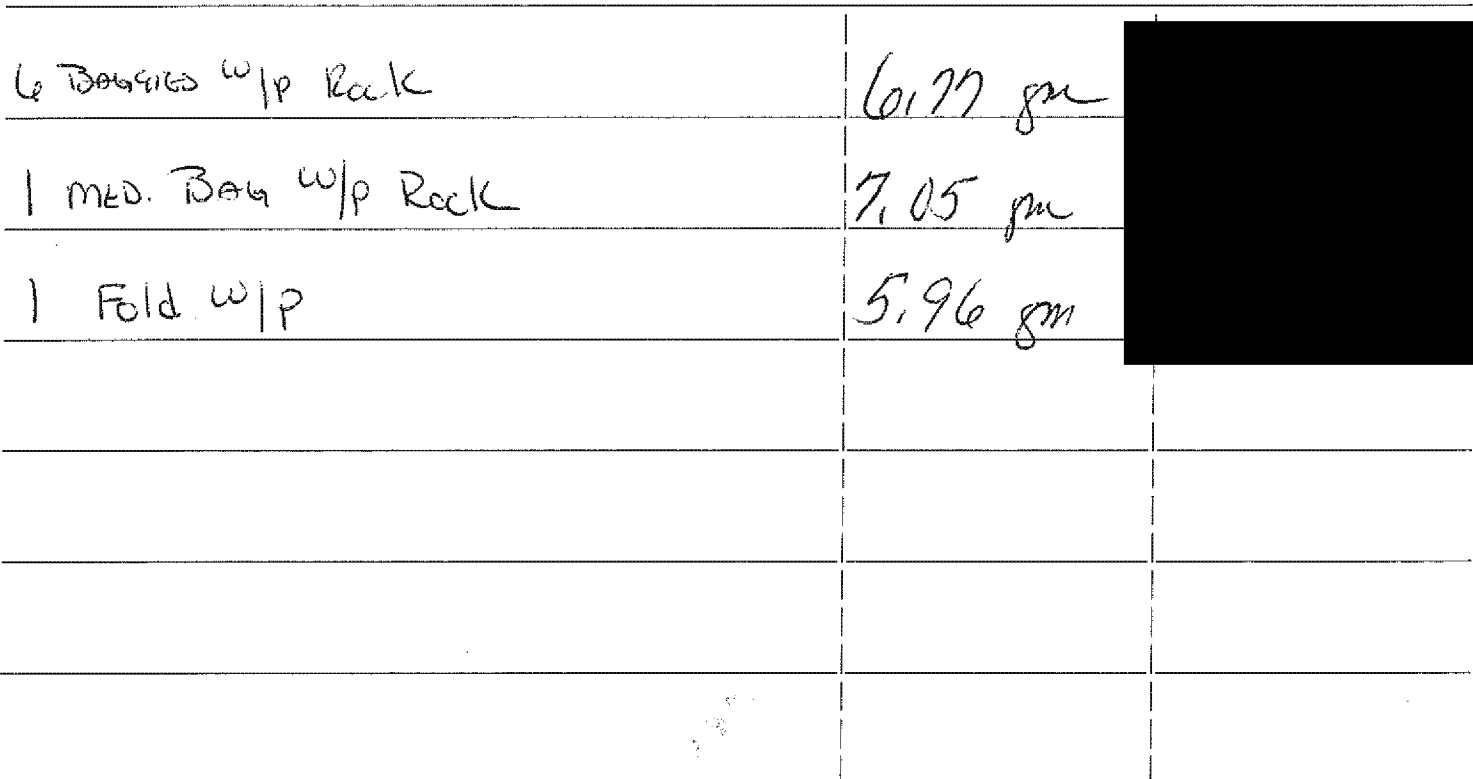 6 BAGGIES w/p Rock 6.77 gm
1 MED. BAG w/p Rock 7.05 gm
1 Fold w/p 5.96 gm